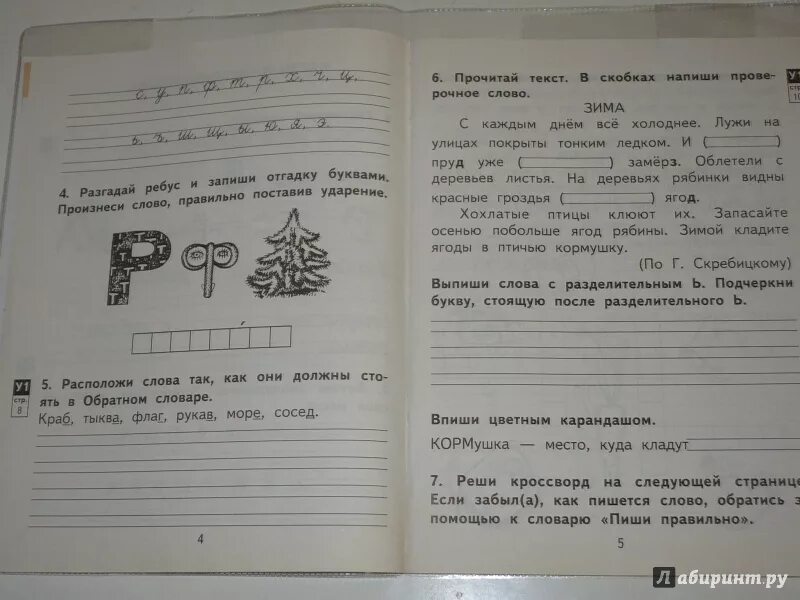 с, у, п, ф, т, р, х, ч, ц,
ь, ъ, ш, щ, ы, ю, я, э.
4. Разгадай ребус и запиши отгадку буквами.
Произнеси слово, правильно поставив ударение.
У1
стр.
8
5. Расположи слова так, как они должны сто-
ять в Обратном словаре.
Краб, тыква, флаг, рукав, море, сосед.
4
У1
стр
10
6. Прочитай текст. В скобках напиши прове-
рочное слово.
ЗИМА
С каждым днём всё холоднее. Лужи на
улицах покрыты тонким ледком. И (          )
пруд уже (          ) замёрз. Облетели с
деревьев листья. На деревьях рябинки видны
красные гроздья (          ) ягод.
Хохлатые птицы клюют их. Запасайте
осенью побольше ягод рябины. Зимой кладите
ягоды в птичью кормушку.
(По Г. Скребицкому)
Выпиши слова с разделительным Ь. Подчеркни
букву, стоящую после разделительного Ь.
Впиши цветным карандашом.
КОРМушка — место, куда кладут
7. Реши кроссворд на следующей странице
Если забыл(а), как пишется слово, обратись з
помощью к словарю «Пиши правильно».
5
Лабиринт.ру